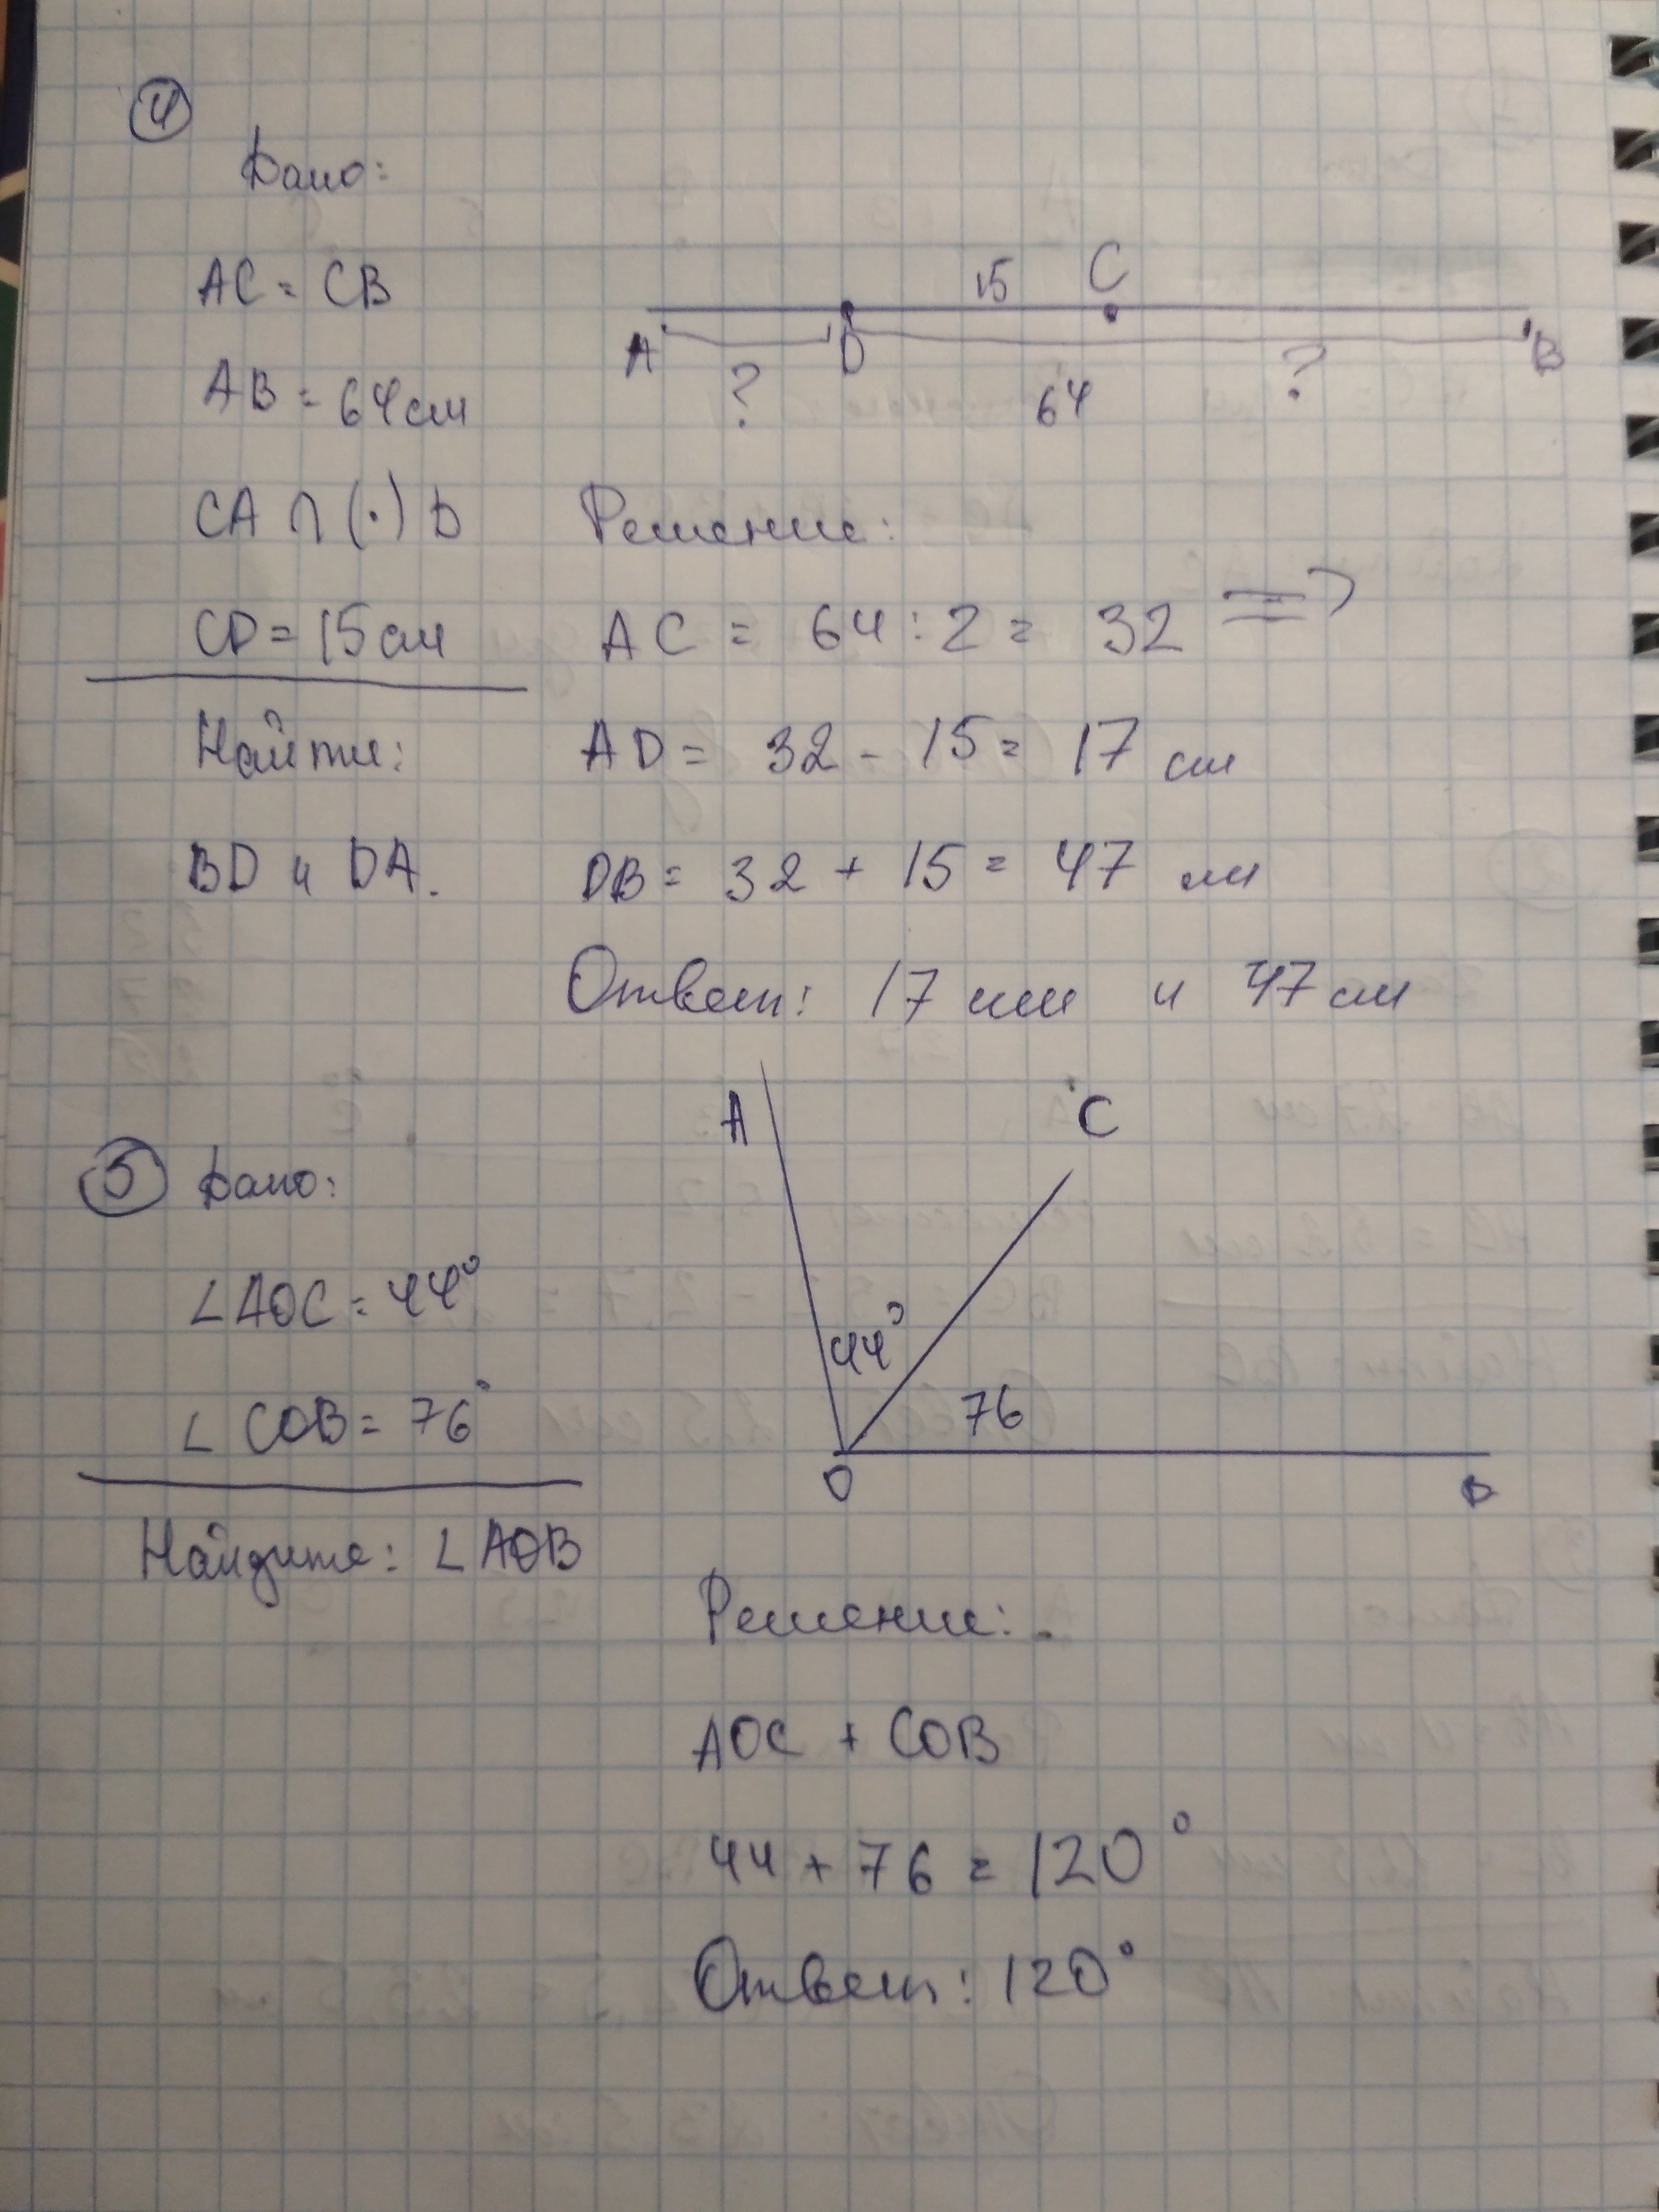 4
Дано:
AC = CB
AB = 64 см
CA ∩ (·) D
CD = 15 см
Найти:
BD и DA.
15 C
A D B
? 64 ?
Решение:
AC = 64 : 2 = 32 =>
AD = 32 - 15 = 17 см
DB = 32 + 15 = 47 см
Ответ: 17 см и 47 см
5 Дано:
∠AOC = 44°
∠COB = 76°
Найдите: ∠AOB
A C
44°
76
O B
Решение:
AOC + COB
44 + 76 = 120°
Ответ: 120°